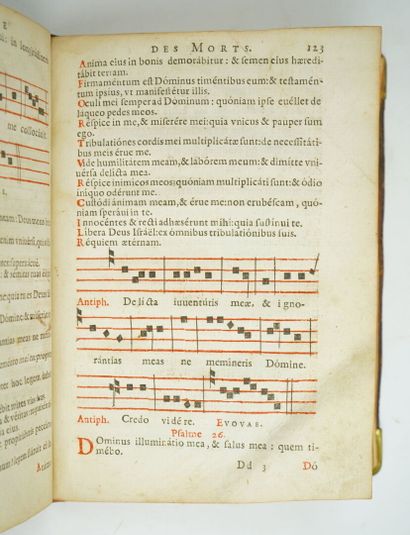 DES MORTS. 123
Anima eius in bonis demorábitur: & semen eius hæredi-
tábit terram.
Firmaméntum est Dóminus timéntibus eum: & testamén-
tum ipsius, vt manifestétur illis.
Oculi mei semper ad Dóminum: quóniam ipse euéllet de
láqueo pedes meos.
Réspice in me, & miserére mei: quia vnicus & pauper sum
ego.
Tribulatiónes cordis mei multiplicátæ sunt: de necessitáti-
bus meis érue me.
Vide humilitátem meam, & labórem meum: & dimítte vni-
uérsa delícta mea.
Réspice inimícos meos quóniam multiplicáti sunt: & ódio
iníquo odérunt me.
Custódi ánimam meam, & érue me: non erubéscam, quó-
niam speráui in te.
Innocéntes & recti adhæsérunt mihi: quia sustínui te.
Libera Deus Israël: ex ómnibus tribulatiónibus suis.
Réquiem ætérnam.
Antiph. Delicta iuuentútis meæ, & igno-
rántias meas ne memíneris Dómine.
Antiph. Credo vidére. EVOVAE.
Psalme 26.
Dominus illuminátio mea, & salus mea: quem ti-
mébo.
Dd 3 Dó